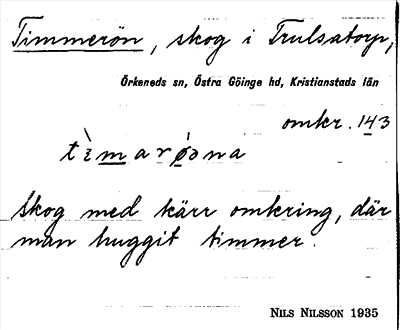 Timmerön, skog i Trulsatorp,
Örkeneds sn, Östra Göinge hd, Kristianstads län
omkr. 143
tìmarøəna
Skog med kärr omkring, där
man huggit timmer.
NILS NILSSON 1935